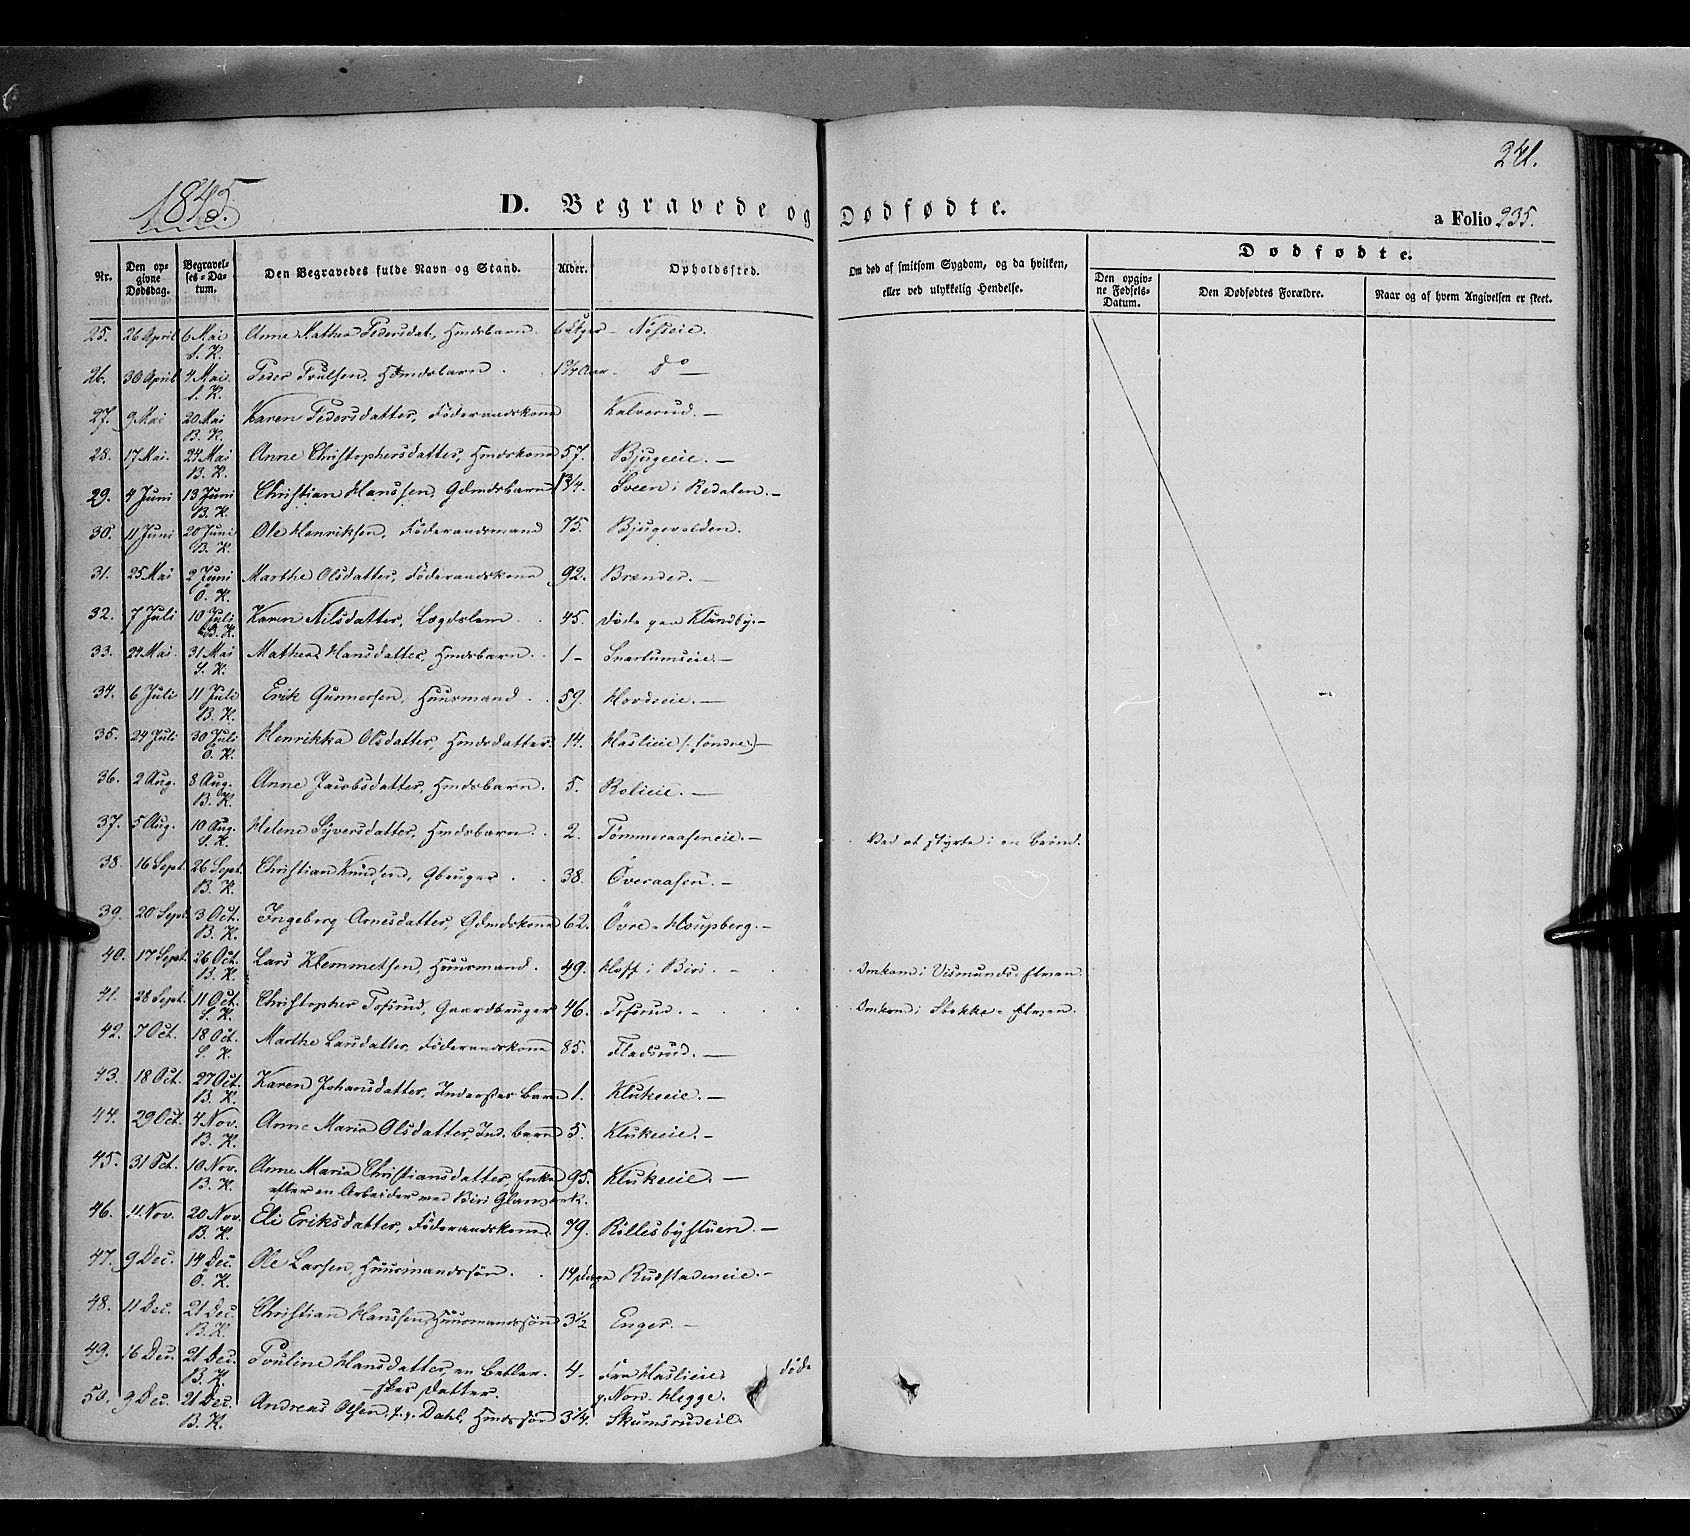 241.
1845.
D. Begravede og Dødfødte.
a Folio 235.
Nr.
Den opgivne Dødsdag.
Begravelses-Datum.
Den Begravedes fulde Navn og Stand.
Alder.
Opholdssted.
Om død af smitsom Sygdom, og da hvilken,
eller ved ulykkelig Hendelse.
Dødfødte.
Den opgivne Fødsels-Datum.
Den Dødfødtes Forældre.
Naar og af hvem Angivelsen er skeet.
25. 26 April 6 Mai S. K. Anne Mathea Pedersdat, Hmdsbarn 6 Uger
26. 30 April 4 Mai. S. K. Peder Poulsen, Hmdsbarn 1 3/4 Aar Do
27. 9 Mai 20 Mai B. K. Karen Pedersdatter, Föderaadskone Kalverud.
28. 17 Mai. 24 Mai B. K. Anne Christophersdatter, Hmdskone 57. Bjugeeie.
29. 4 Juni 13 Juni B. K. Christian Hanssen, Gdmdsbarn 1 3/4. Sveen i Redalen.
30. 11 Juni 20 Juni B. K. Ole Henriksen, Föderaadsmand 75. Bjugevolden.
31. 25 Mai 2 Juni Ö. K. Marthe Olsdatter, Föderaadskone 92. Brænder.
32. 7 Juli 10 Juli B. K. Karen Nilsdatter, Lægdslem 45. døde paa Klundby.
33. 24 Mai. 31 Mai S. K. Mathea Hansdatter, Hmdsbarn. 1 Snartumseie.
34. 6 Juli 11 Juli B. K. Erik Gunnersen, Huusmand 59. Hovdeeie.
35. 24 Juli 30 Juli Ö. K. Henrikka Olsdatter, Hmdsdatter. 14. Haslieie (: söndre)
36. 2 Aug. 8 Aug. B. K. Anne Jacobsdatter, Hmdsbarn. 5. Rolieie.
37. 5 Aug. 10 Aug. S. K. Helene Syversdatter, Hmdsbarn 2. Tömmeraaseneie. Ved at styrte i en Brönd.
38. 16 Sept. 26 Sept. B. K. Christian Knudsen, Gbruger 38. Överaasen.
39. 20 Sept. 3 Oct. B. K. Ingeborg Arnesdatter, Gdmdskone 62. Övre Houpberg.
40. 17 Sept. 26 Oct. B. K. Lars Klemmetsen, Huusmand. 49. Hoff i Biri. Omkom i Vismunds-Elven.
41. 28 Sept. 11 Oct. S. K. Christopher Tofsrud, Gaardbruger 46. Tofsrud. Omkom i Stokke-Elven.
42. 7 Oct. 18 Oct. S. K. Marthe Larsdatter, Föderaadskone 85. Fladsrud.
43. 18 Oct. 27 Oct. B. K. Karen Johansdatter, Inderstes barn 1. Klukeeie.
44. 29 Oct. 4 Nov. B. K. Anne Maria Olsdatter, Ind. barn 5. Klukeeie.
45. 31 Oct. 10 Nov. B. K. Anne Maria Christiansdatter, Enke 95. Klukeeie.
efter en Arbeider ved Biri Glasværk.
46. 11 Nov. 20 Nov. B. K. Eli Eriksdatter, Föderaadskone 79. Röllesbystuen.
47. 9 Dec. 14 Dec. Ö. K. Ole Larsen, Huusmandssön. 14 dage Rudstadeneie.
48. 11 Dec. 21 Dec. B. K. Christian Hanssen, Huusmandssön 3 1/2 Enger.
49. 16 Dec. 21 Dec. B. K. Pouline Hansdatter, en Betler- 4 Fra Haslieie døde
skes datter. p. Nord. Hegge.
50. 9 Dec. 21 Dec. B. K. Andreas Olsen, f. p. Dahl, Hmdssön 3/4. Skumsrudeie.